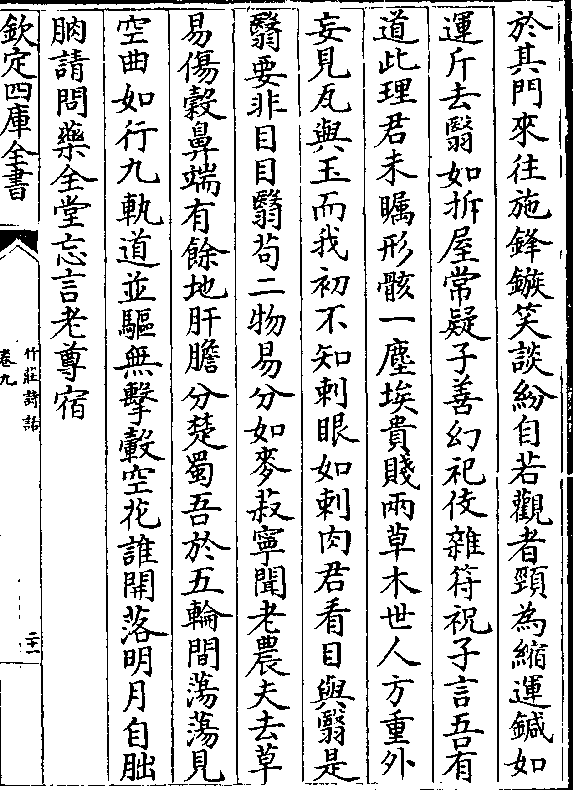 於其門來往施鋒鏃笑談紛自若觀者頸為縮運鍼如
運斤去翳如拆屋常疑子善幻祀伎雜符祝子言吾有
道此理君未矚形骸一塵埃貴賤兩草木世人方重外
妄見瓦與玉而我初不知刺眼如刺肉君看目與翳是
翳要非目目翳苟二物易分如麥菽寧聞老農夫去草
易傷糓鼻端有餘地肝膽分楚蜀吾於五輪間蕩蕩見
空曲如行九軌道並驅無擊轂空花誰開落明月自朏
朒請問藥全堂忘言老尊宿
欽定四庫全書
竹莊詩話
卷九
二十一